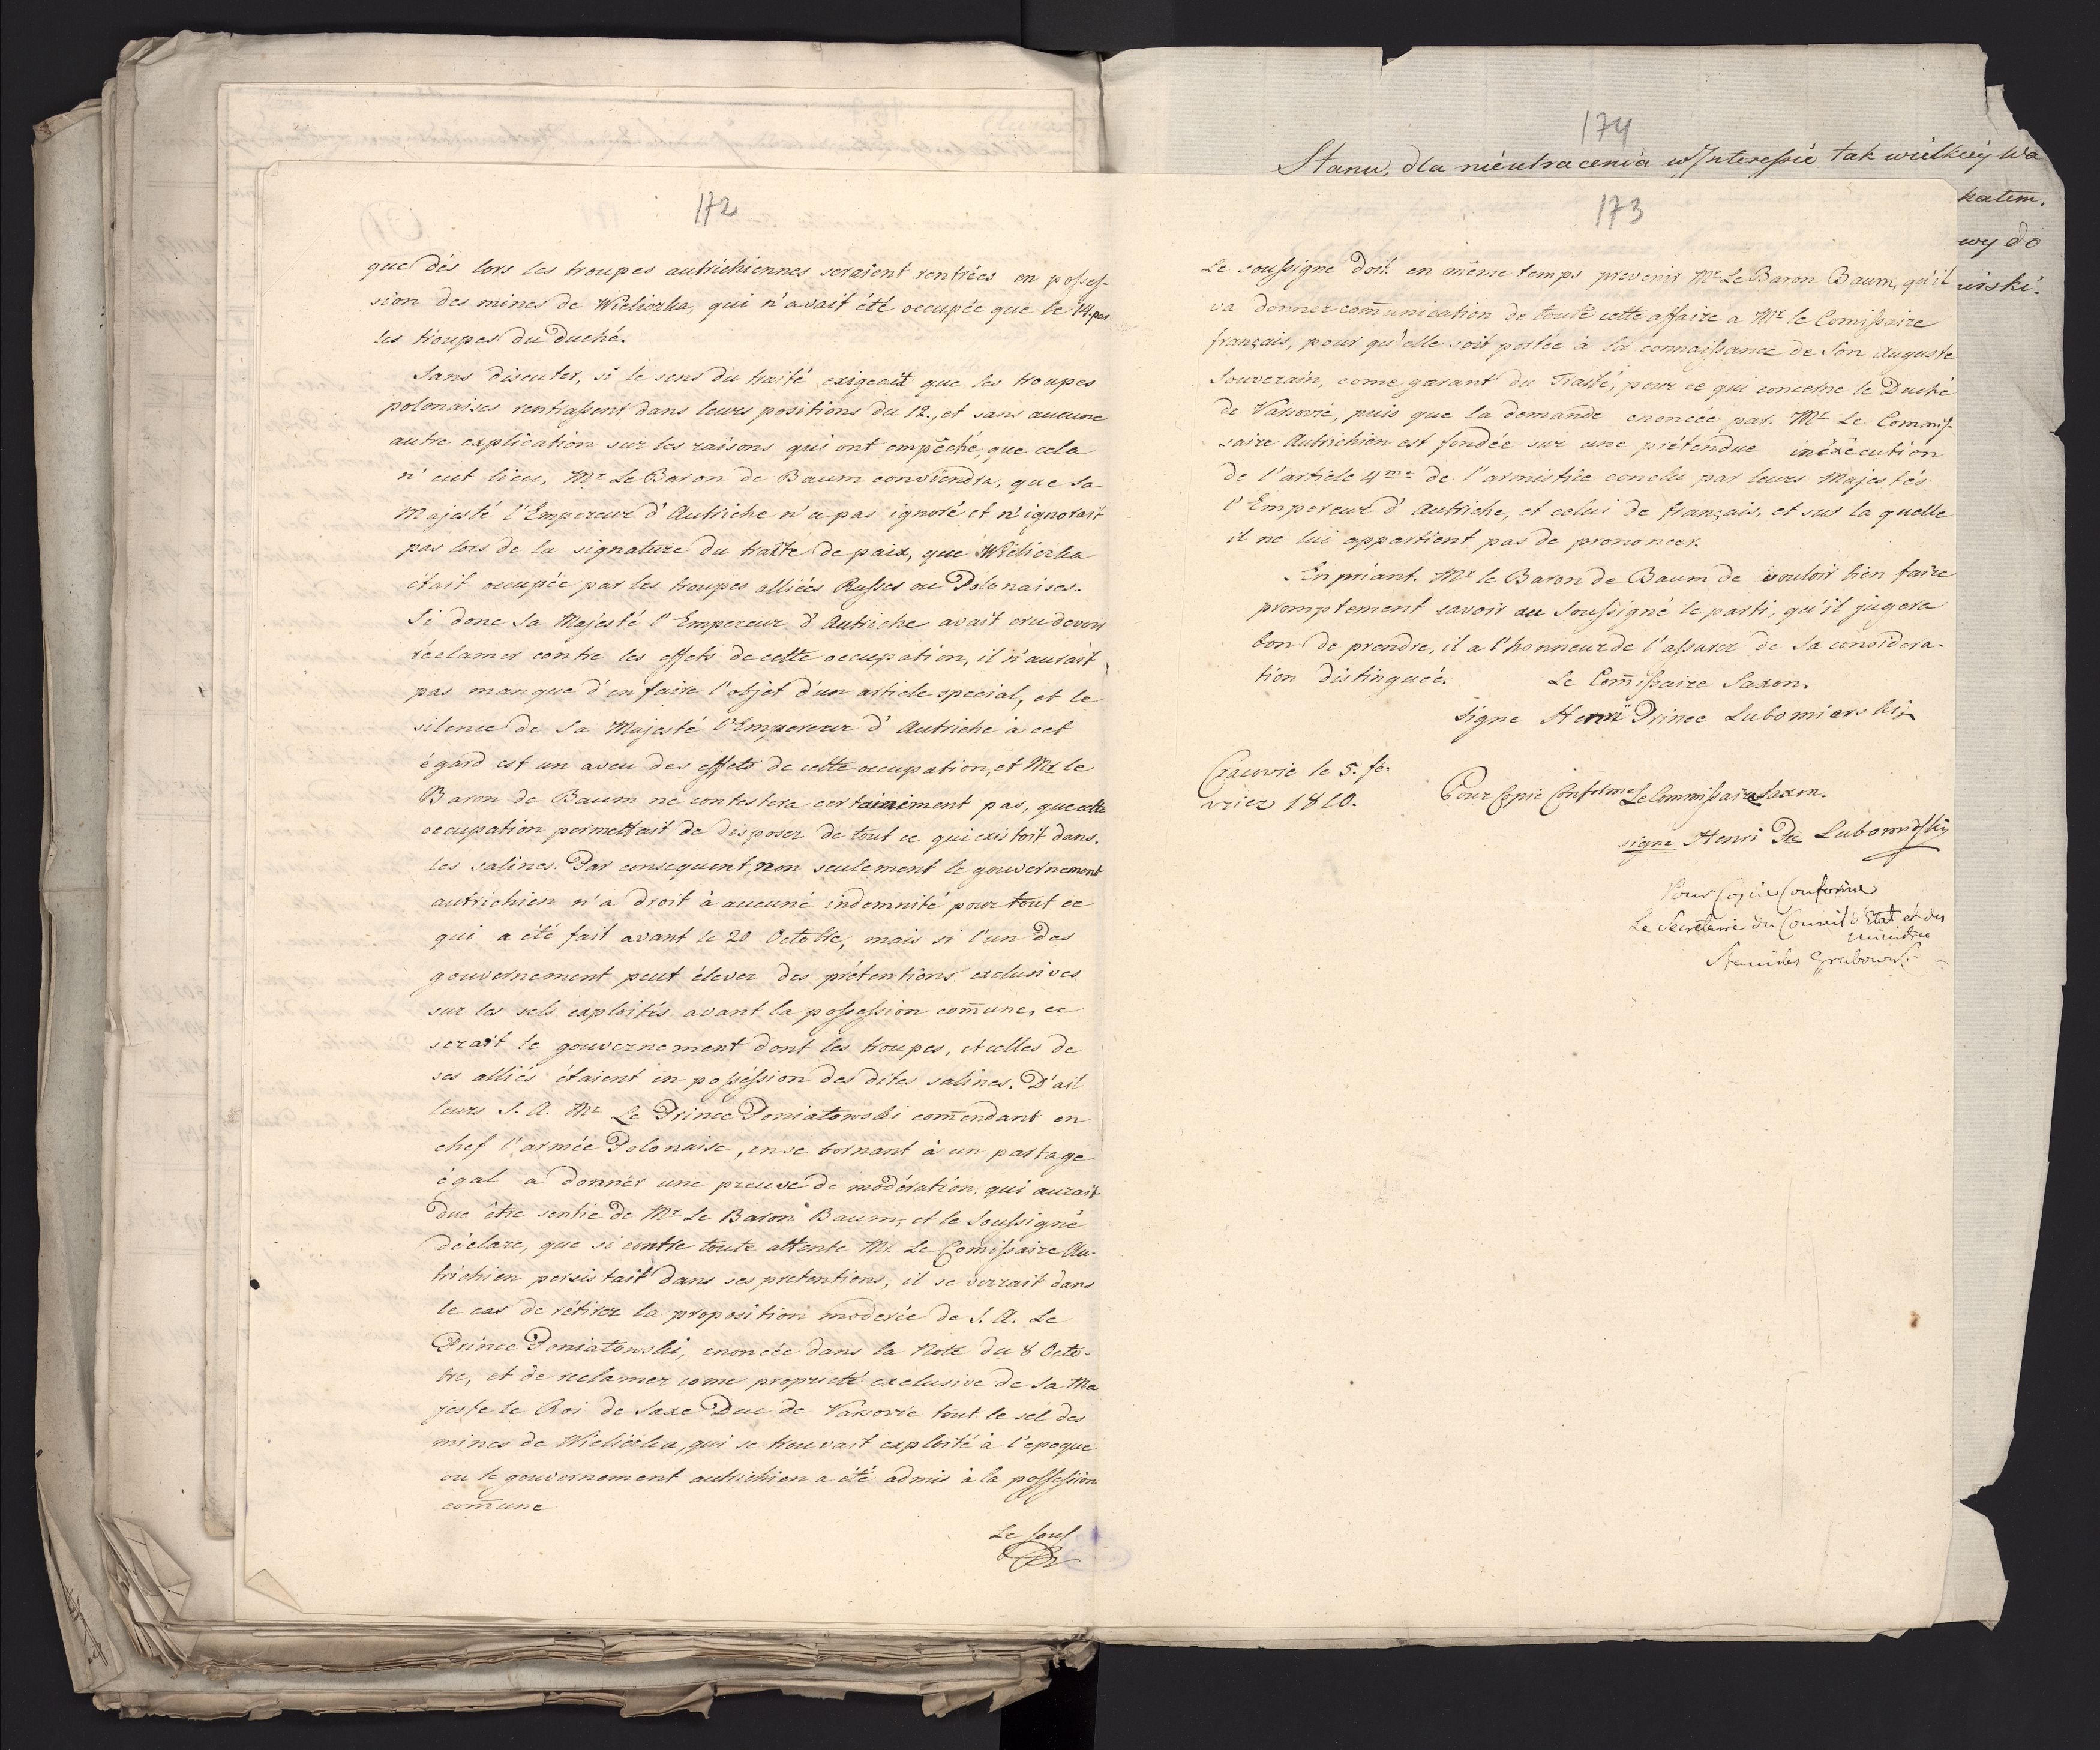 172
que dés lors les troupes autrichiennes seraient rentrées en posses-
sion des mines de Wieliczka, qui n'avait été occupée que le 14. par
les troupes du duché.
Sans discuter, si le sens du traité exigeait que les troupes
polonaises rentrassent dans leurs positions du 12., et sans aucune
autre explication sur les raisons qui ont empêché, que cela
n'eut lieu, Mr Le Baron de Baum conviendra, que Sa
Majesté l'Empereur d'Autriche n'a pas ignoré et n'ignorait
pas lors de la signature du traité de paix, que Wieliczka
était occupée par les troupes alliées Russes ou Polonaises.
Si donc Sa Majesté l'Empereur d'Autriche avait cru devoir
réclamer contre les effets de cette occupation, il n'aurait
pas manque d'en faire l'objet d'un article special, et le
silence de Sa Majesté l'Empereur d'Autriche à cet
égard est un aveu des effets de cette occupation, et Mr le
Baron de Baum ne contestera certainement pas, que cette
occupation permettait de disposer de tout ce qui existoit dans
les salines. Par consequent, non seulement le gouvernement
autrichien n'a droit à aucune indemnité pour tout ce
qui a été fait avant le 20 Octobre, mais si l'un des
gouvernement peut élever des prétentions exclusives
sur les sels exploités avant la possession com̄une, ce
serait le gouvernement dont les troupes, et celles de
ses alliés étaient en posséssion des dites salines. D'ail
leurs S. A. Mr Le Prince Poniatowski com̄endant en
chef l'armée Polonaise, en se bornant à un partage
égal a donner une preuve de modération, qui aurait
due être sentie de Mr Le Baron Baum, et le Soussigné
déclare, que si contre toute attente Mr. Le Com̄issaire Au-
trichien persistait dans ses pretentions, il se verrait dans
le cas de rétirer la proposition moderée de S. A. Le
Prince Poniatowski, enoncée dans la Note du 8 Octo-
bre, et de reclamer come proprieté exclusive de Sa Ma
jeste le Roi de Saxe Duc de Varsovie tout le sel des
mines de Wieliczka, qui se trouvait exploité à l'epoque
ou le gouvernement autrichien a été admis à la possession
com̄une
Le Sous
173
Le soussigne doit en même temps prevenir Mr Le Baron Baum, qu'il
va donner com̄unication de toute cette affaire a Mr le Comissaire
français, pour qu'elle soit portée à la connaissance de Son Auguste
Souverain, come garant du Traité, pour ce qui concerne le Duché
de Varsovie, puis que la demande enoncée par Mr Le Commis-
saire Autrichien est fondée sur une prétendue inéxécution
de l'article 4me de l'armistice conclu par leurs Majestés
l'Empereur d'Autriche, et celui de français, et sur la quelle
il ne lui appartient pas de prononcer.
En priant Mr le Baron de Baum de vouloir bien faire
promptement savoir au Soussigné le parti, qu'il jugera
bon de prendre, il a l'honneur de l'assurer de Sa considera-
tion distinguée. Le Com̄issaire Saxon.
Signe Henri Prince Lubomierski
Cracovie le 5. fe-
vrier 1810.
Pour Copie Conforme Le Commissaire Saxon.
signe Henri Pce Lubomirski
Pour Copie Conforme
Le Secretaire du Conseil d'Etat et des
Ministres
Stanislas Grabowski
174
Stanu, dla nieutracenia w Interessie tak wielkiey Wa
katem.
wy do
irski.